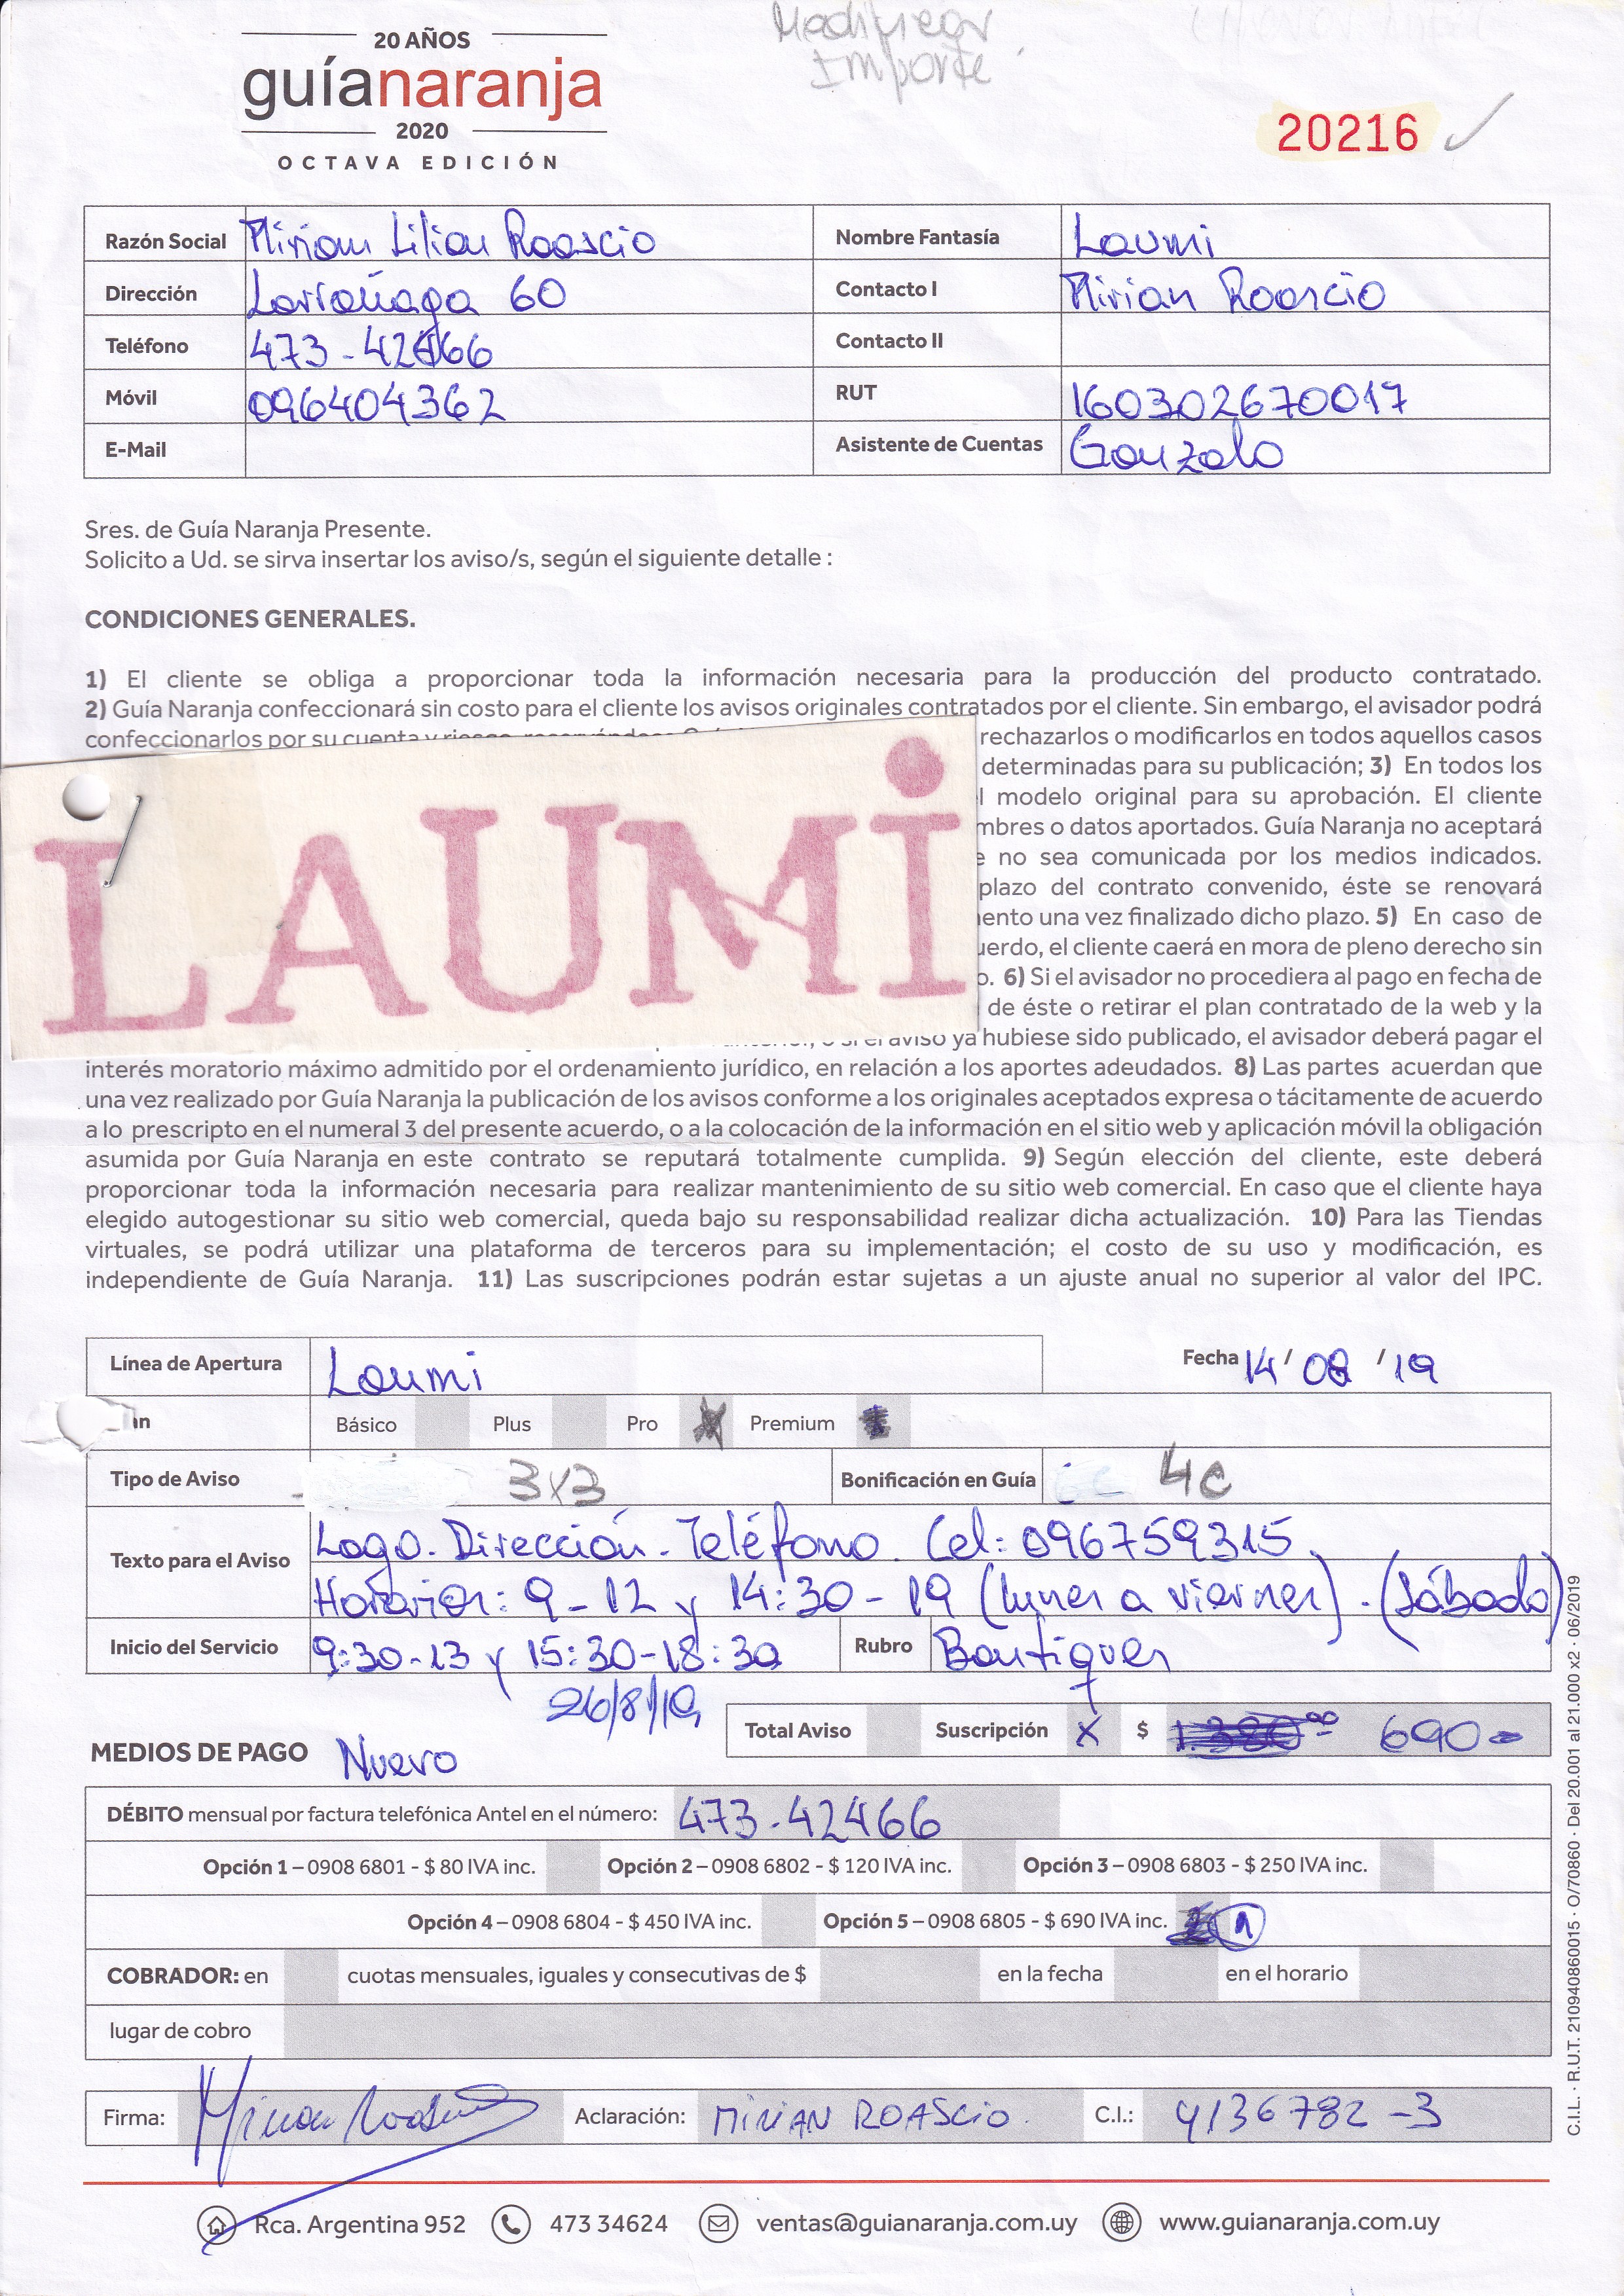 Modificar
Importe
20 AÑOS
guíanaranja
2020
OCTAVA EDICIÓN
20216
Razón Social Mirian Lilian Roascio Nombre Fantasía Laumi
Dirección Larrañaga 60 Contacto I Mirian Roascio
Teléfono 473-42466 Contacto II
Móvil 096404362 RUT 160302670017
E-Mail Asistente de Cuentas Gonzalo
Sres. de Guía Naranja Presente.
Solicito a Ud. se sirva insertar los aviso/s, según el siguiente detalle :
CONDICIONES GENERALES.
1) El cliente se obliga a proporcionar toda la información necesaria para la producción del producto contratado.
2) Guía Naranja confeccionará sin costo para el cliente los avisos originales contratados por el cliente. Sin embargo, el avisador podrá
confeccionarlos por su cuenta y rechazarlos o modificarlos en todos aquellos casos
determinadas para su publicación; 3) En todos los
modelo original para su aprobación. El cliente
o datos aportados. Guía Naranja no aceptará
no sea comunicada por los medios indicados.
plazo del contrato convenido, éste se renovará
una vez finalizado dicho plazo. 5) En caso de
el cliente caerá en mora de pleno derecho sin
6) Si el avisador no procediera al pago en fecha de
de éste o retirar el plan contratado de la web y la
LAUMI
o si el aviso ya hubiese sido publicado, el avisador deberá pagar el
interés moratorio máximo admitido por el ordenamiento jurídico, en relación a los aportes adeudados. 8) Las partes acuerdan que
una vez realizado por Guía Naranja la publicación de los avisos conforme a los originales aceptados expresa o tácitamente de acuerdo
a lo prescripto en el numeral 3 del presente acuerdo, o a la colocación de la información en el sitio web y aplicación móvil la obligación
asumida por Guía Naranja en este contrato se reputará totalmente cumplida. 9) Según elección del cliente, este deberá
proporcionar toda la información necesaria para realizar mantenimiento de su sitio web comercial. En caso que el cliente haya
elegido autogestionar su sitio web comercial, queda bajo su responsabilidad realizar dicha actualización. 10) Para las Tiendas
virtuales, se podrá utilizar una plataforma de terceros para su implementación; el costo de su uso y modificación, es
independiente de Guía Naranja. 11) Las suscripciones podrán estar sujetas a un ajuste anual no superior al valor del IPC.
Línea de Apertura Laumi Fecha 14/ 08 /19
Básico Plus Pro X Premium
Tipo de Aviso 3x3 Bonificación en Guía 4c
Texto para el Aviso Logo. Dirección. Teléfono. Cel: 096759315
Horarios: 9-12 y 14:30-19 (lunes a viernes). (Sábado)
Inicio del Servicio 9:30-13 y 15:30-18:30 Rubro Boutiques
26/8/19
Total Aviso Suscripción X $ 1.380 00 690
MEDIOS DE PAGO Nuevo
DÉBITO mensual por factura telefónica Antel en el número: 473-42466
Opción 1 – 0908 6801 - $ 80 IVA inc. Opción 2 – 0908 6802 - $ 120 IVA inc. Opción 3 – 0908 6803 - $ 250 IVA inc.
Opción 4 – 0908 6804 - $ 450 IVA inc. Opción 5 – 0908 6805 - $ 690 IVA inc. 1
COBRADOR: en cuotas mensuales, iguales y consecutivas de $ en la fecha en el horario
lugar de cobro
Firma: Mirian Roascio Aclaración: MIRIAN ROASCIO C.I.: 4136782-3
Rca. Argentina 952 473 34624 ventas@guianaranja.com.uy www.guianaranja.com.uy
C.I.L. · R.U.T. 210940860015 · O/70860 · Del 20.001 al 21.000 x2 · 06/2019